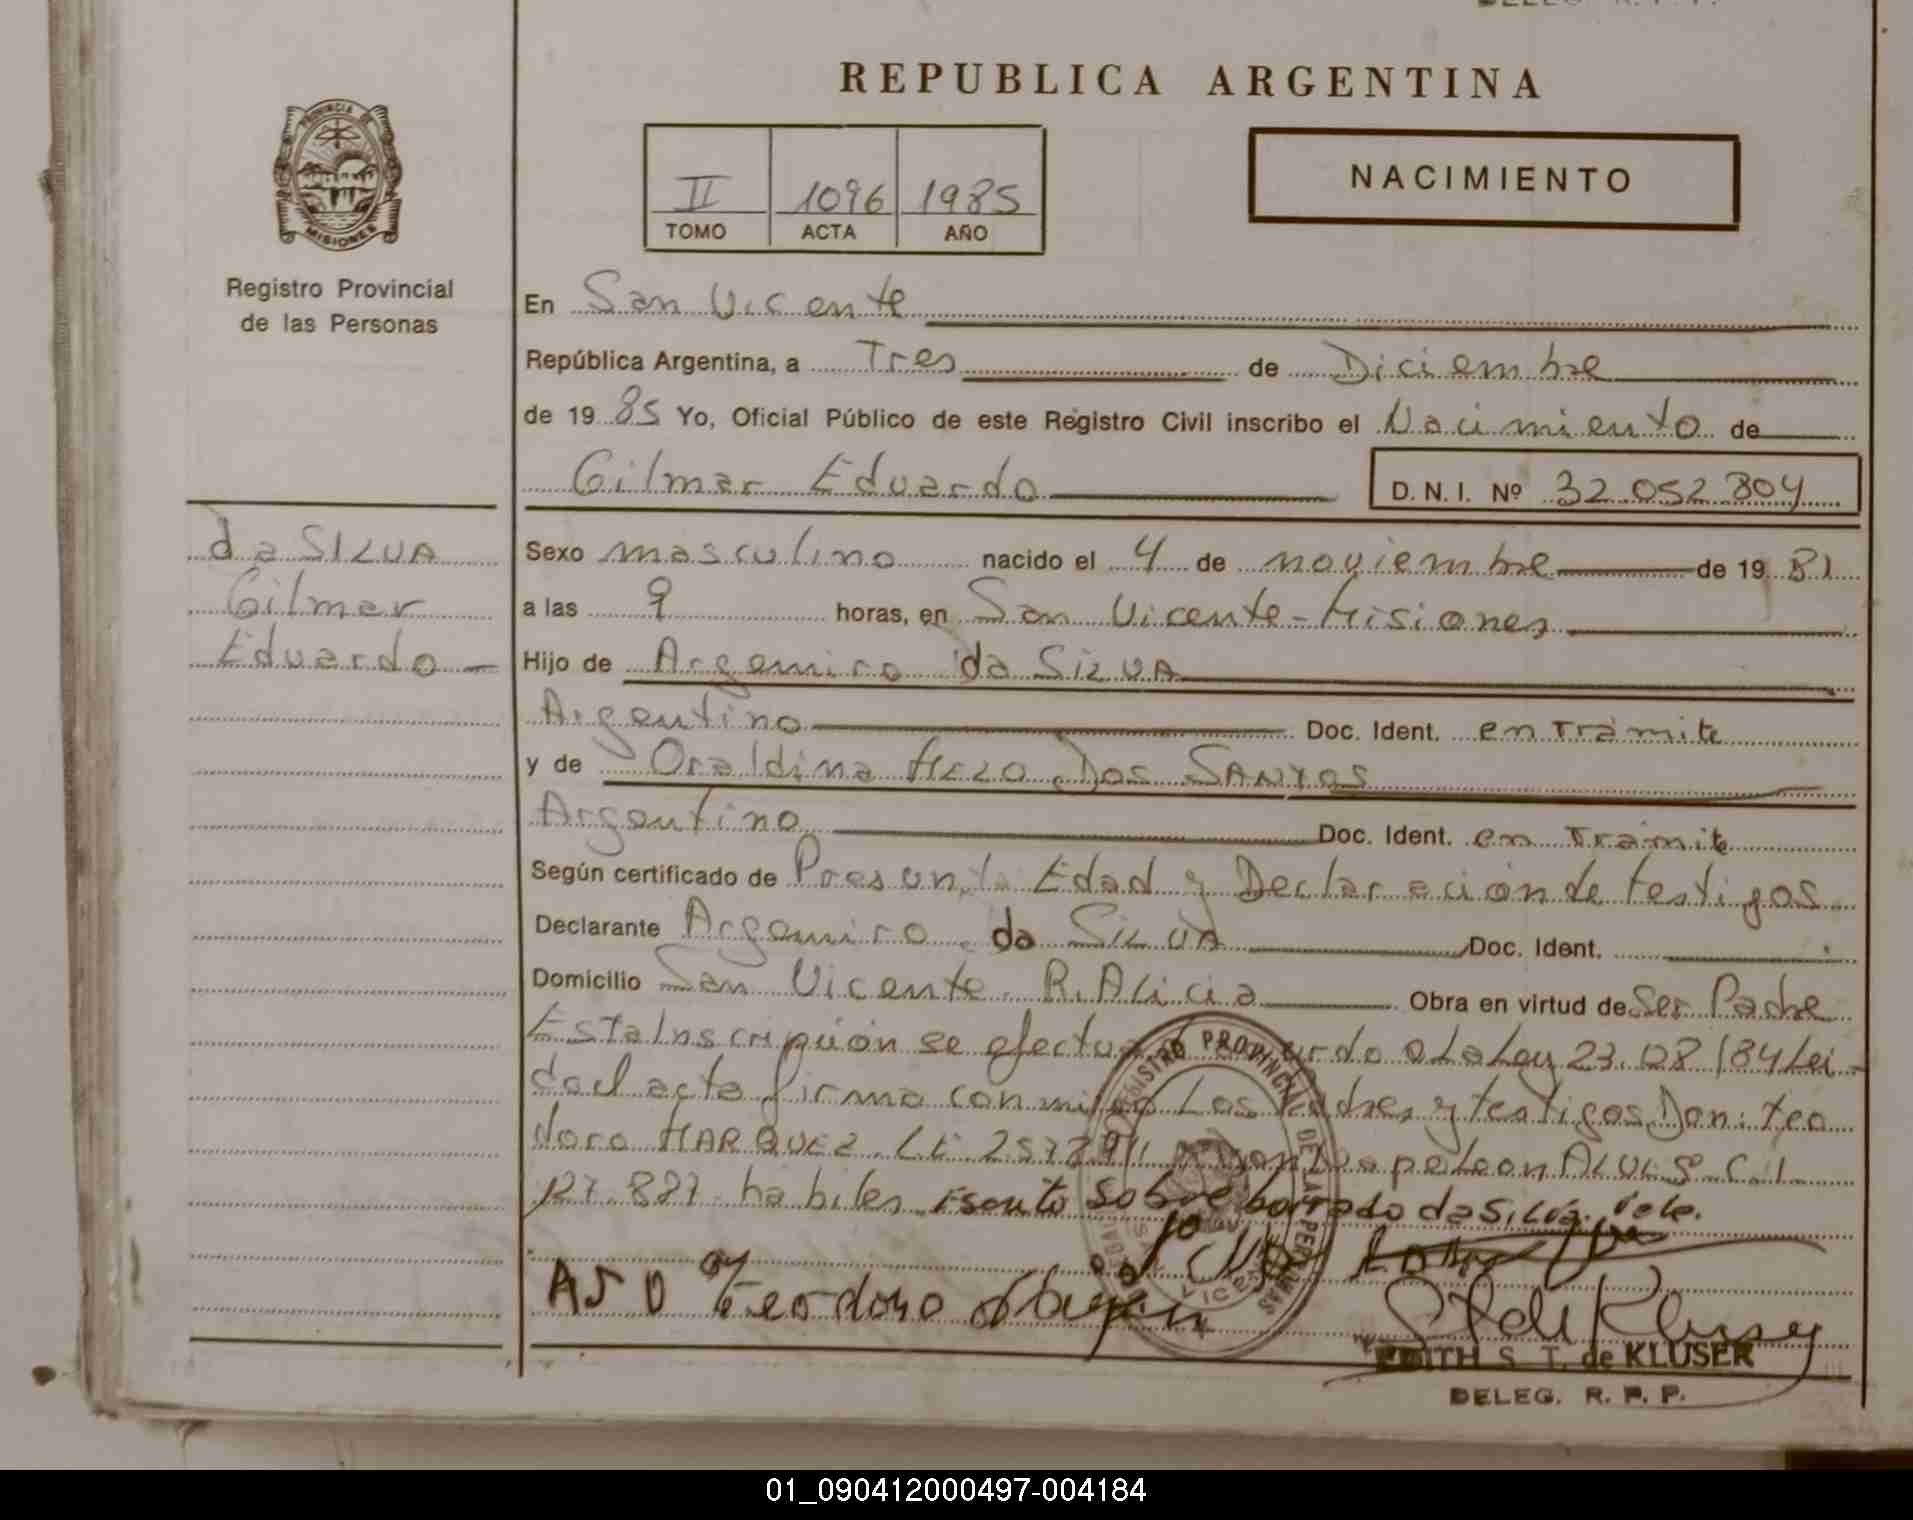 REPUBLICA ARGENTINA
PROVINCIA DE
MISIONES
II 1096 1985
TOMO ACTA AÑO
NACIMIENTO
Registro Provincial
de las Personas
En San Vicente
República Argentina, a Tres de Diciembre
de 1985 Yo, Oficial Público de este Registro Civil inscribo el Nacimiento de
Gilmar Eduardo D.N.I. Nº 32.052.804
da SILVA
Gilmar
Eduardo
Sexo masculino nacido el 4 de noviembre de 1981
a las 9 horas, en San Vicente - Misiones
Hijo de Argemiro da SILVA
Argentino Doc. Ident. en Trámite
y de Oraldina Dos SANTOS
Argentino Doc. Ident. en Tramite
Según certificado de Presunta Edad y Declaración de testigos
Declarante Argemiro da SILVA Doc. Ident.
Domicilio San Vicente R. Alicia Obra en virtud de Ser Padre
Esta Inscripción se efectua ordo a La Ley 23.128/84 Lei-
da el acta firma con migo Los Padres y testigos Don: Teo
doro MARQUEZ LE y Don Napoleon ALVES C.I.
127.827 habiles Escrito sobre borrado da Silva. Vale.
Teodoro
REGISTRO PROVINCIAL DE LAS PERSONAS
EDITH S. T. de KLUSER
DELEG. R. P. P.
01_090412000497-004184